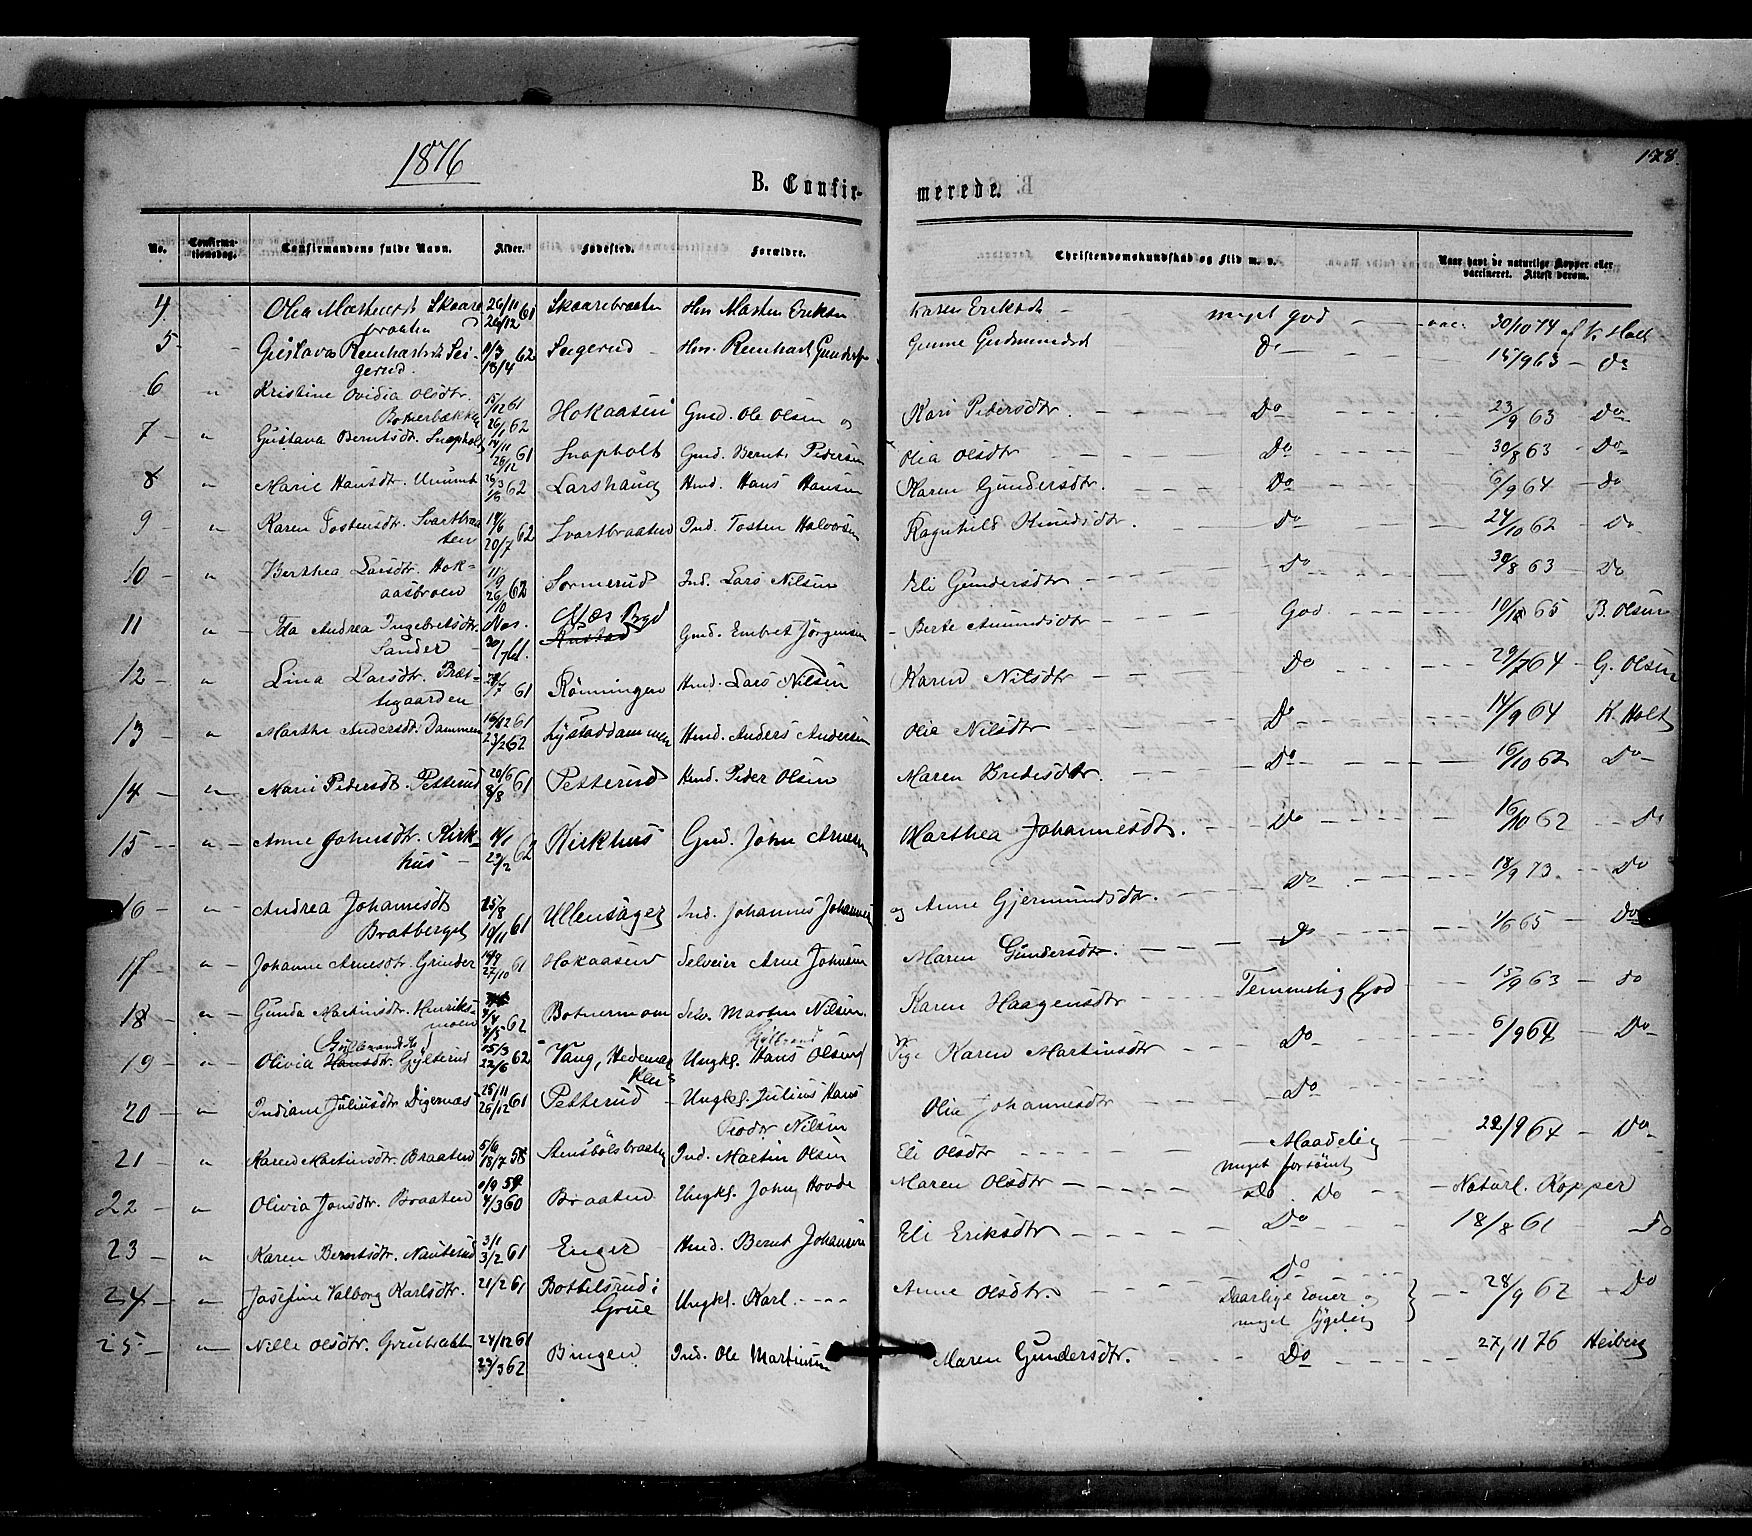 1876
178.
B. Confir-
merede.
No.
Confirma-
tionsdag.
Confirmandens fulde Navn.
Alder.
Fødested.
Forældre.
Christendomskundskab og Flid m. v.
Naar havt de naturlige Kopper eller
vaccineret. Attest derom.
4 Olea Skaare 26/11 61 Skaarebraaten Hm Morten Eriksen Eriksdtr meget god vac. 30/10 74 af K. Holt
braaten 26/12
5 - Gustava 62 Segerud Hm. Reinhart Gunne Gudmundsdt Do 15/9 63 - Do
gerud. 18/4
6 " Kristine Ovidia Olsdtr. 15/12 61 Hokaasen Gmd. Ole Olsen og Kari Pedersdtr. Do 23/9 63 Do
26/1 62
7 - " Gustava Berntsdt. Snapholt 61 Snapholt Gmd. Bernt Pedersen Olia Olsdtr Do 30/8 63 - Do
26/12
8 " Marie Hansdtr. 62 Larshaug Hmd. Hans Hansen Karen Gundersdtr. Do 6/9 64 - Do
9 - " Karen Tostensdtr. Svartbraa- 62 Svartbraaten Ind. Tosten Halvorsen Ragnhild Knudsdtr. Do 24/10 62 - Do
ten 20/7
10 - " Berthea Larsdtr. Hok- 11/9 62 Sormerud Ind. Lars Nilsen Eli Gundersdtr Do 30/8 63 - Do
aasbroen 26/10
11 " Ida Andrea Ingebretsdtr. Nos. Næs Bygd Gmd. Embret Jörgensen Berte Amundsdtr God 65 B. Olsen
Sander 61.
12 - " Lina Larsdtr. Bræt- 61 Rönningen Hmd. Lars Nilsen Karen Nilsdtr Do 29/7 64 - G. Olsen
tegaarden
13 - " Marthe Andersdt. Dammen 61 Lystaddammen Hmd. Anders Andersen Olia Nilsdtr Do 14/9 64 K. Holt
23/2 62
14 - " Marie Pedersdt. Petterud 20/6 61 Petterud Hmd. Peder Olsen Maren Do 16/10 62 Do
8/8
15 - " Anne Johnsdtr. Kirk- 14/1 62 Kirkhus Gmd. John Arnesen Marthea Johannesdt. Do 16/10 62 - Do
hus -
16 - " Andrea Johannesdt 25/8 61 Ullensager Ind. Johannes Johannes og Anne Gjermundsdtr. Do 18/9 73. Do
Bratberget 19/11
17 - " Johanne Arnesdtr. Grinder 61 Hokaasen Selveier Arne Johnsen Maren Gundersdtr. Do 1/6 65 - Do
27/10
18 - " Gunda Martinsdt. Henriks- 62 Botnermoen Selv. Morten Nilsen. Karen Haagensdtr Temmelig God 15/9 63 - Do
moen 4/5
19 - " Olivia Hansdtr. Gylterud 15/3 62 Vang, Hedemar- Ungkl. Hans Olsen Pige Karen Martinsdtr Do 6/9 64 - Do
22/6 ken
20 - " Indiane Juliusdt. Digernæs 25/11 61 Petterud - Ungkf. Julius Hans Olia Johannesdtr Do
26/12
Teodor Nilsen
21 - " Karen Martinsdtr. Braaten 5/6 58 Stensbölsbraaten Ind. Martin Olsen Eli Olsdtr - Maadelig 22/9 64 - Do
18/7 meget forsömt
22 - " Olivia Jonsdtr. Braaten 59 Braaten Ungkf. John Hovde Maren Olsdtr Do. Do - Naturl. Kopper
4/3 60
23 - " Karen Berntsdtr. Nauterud 3/1 61 Enger Hmd. Bernt Johansen Eli Eriksdtr Do 18/8 61 Do
3/2
24 - " Josefine Valborg Karlsdtr. 21/2 61 Bottilsrud i Ungkf. Karl Anne Olsdtr. Do 28/9 62 Do
Grue Daarlige Evner og
meget sygelig
25 - " Nille Olsdtr. 24/12 61 Bingen Ind. Ole Martinsen Maren Gundersdtr. Do 27/11 76 Heiberg
23/3 62